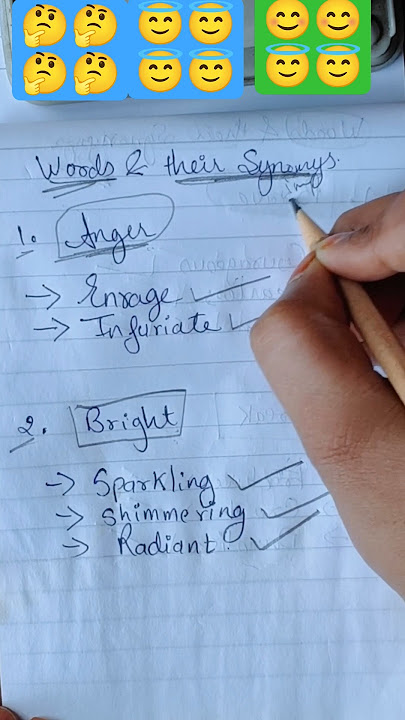 Words & their Synonys.
1. Anger
→ Enrage ✓
→ Infuriate ✓
2. Bright
→ Sparkling ✓
→ Shimmering ✓
→ Radiant. ✓